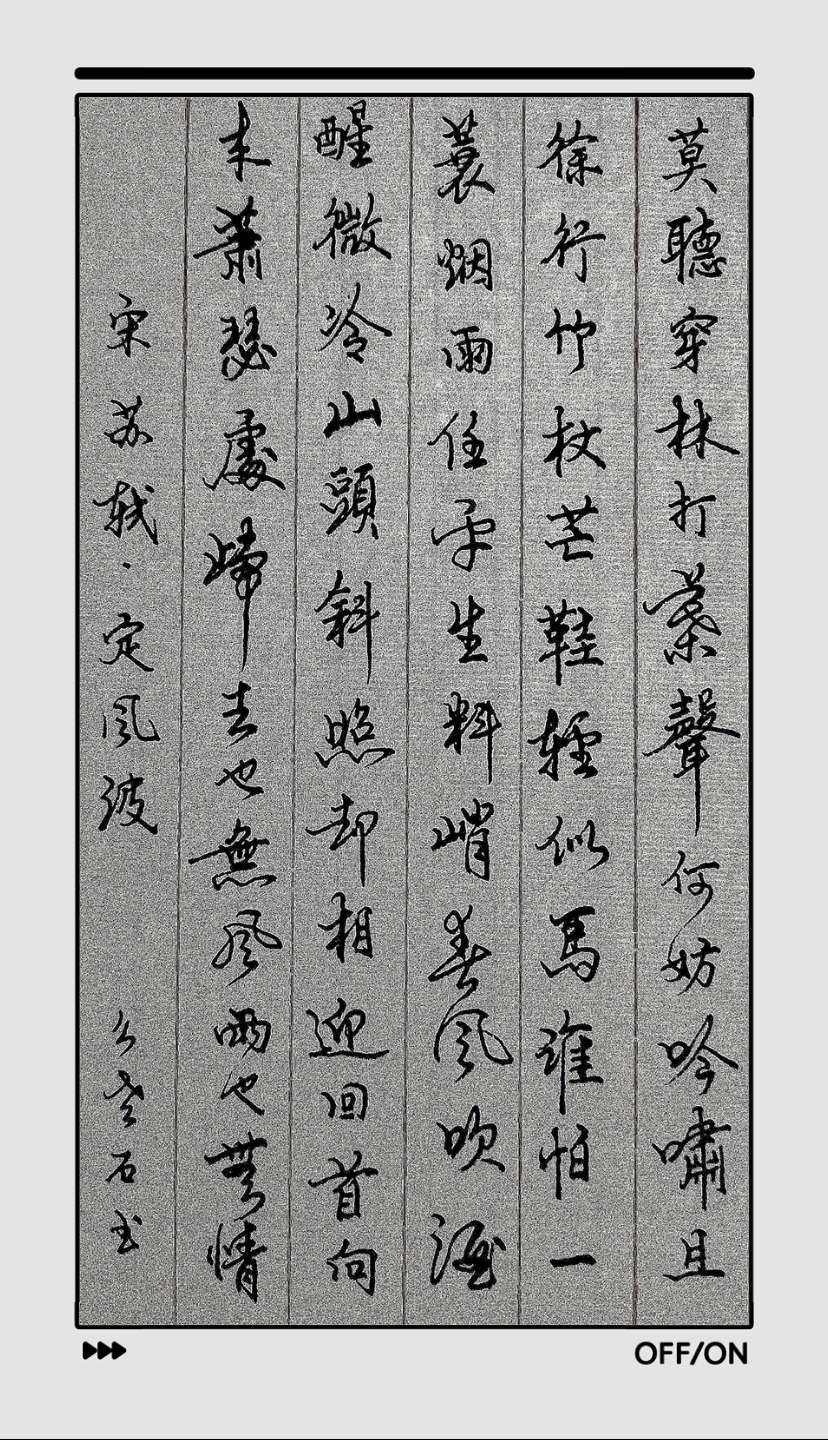 莫聽穿林打葉聲何妨吟嘯且
徐行竹杖芒鞋輕似馬誰怕一
蓑烟雨任平生料峭春風吹酒
醒微冷山頭斜照却相迎回首向
来蕭瑟處歸去也無風雨也無情
宋苏轼·定風波
石书
OFF/ON